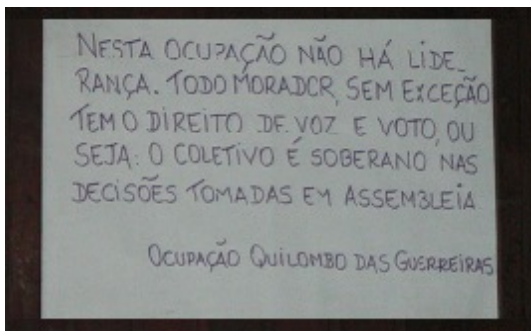 NESTA OCUPAÇÃO NÃO HÁ LIDE_
RANÇA. TODO MORADOR, SEM EXCEÇÃO
TEM O DIREITO DE VOZ E VOTO, OU
SEJA: O COLETIVO É SOBERANO NAS
DECISÕES TOMADAS EM ASSEMBLEIA
OCUPAÇÃO QUILOMBO DAS GUERREIRAS